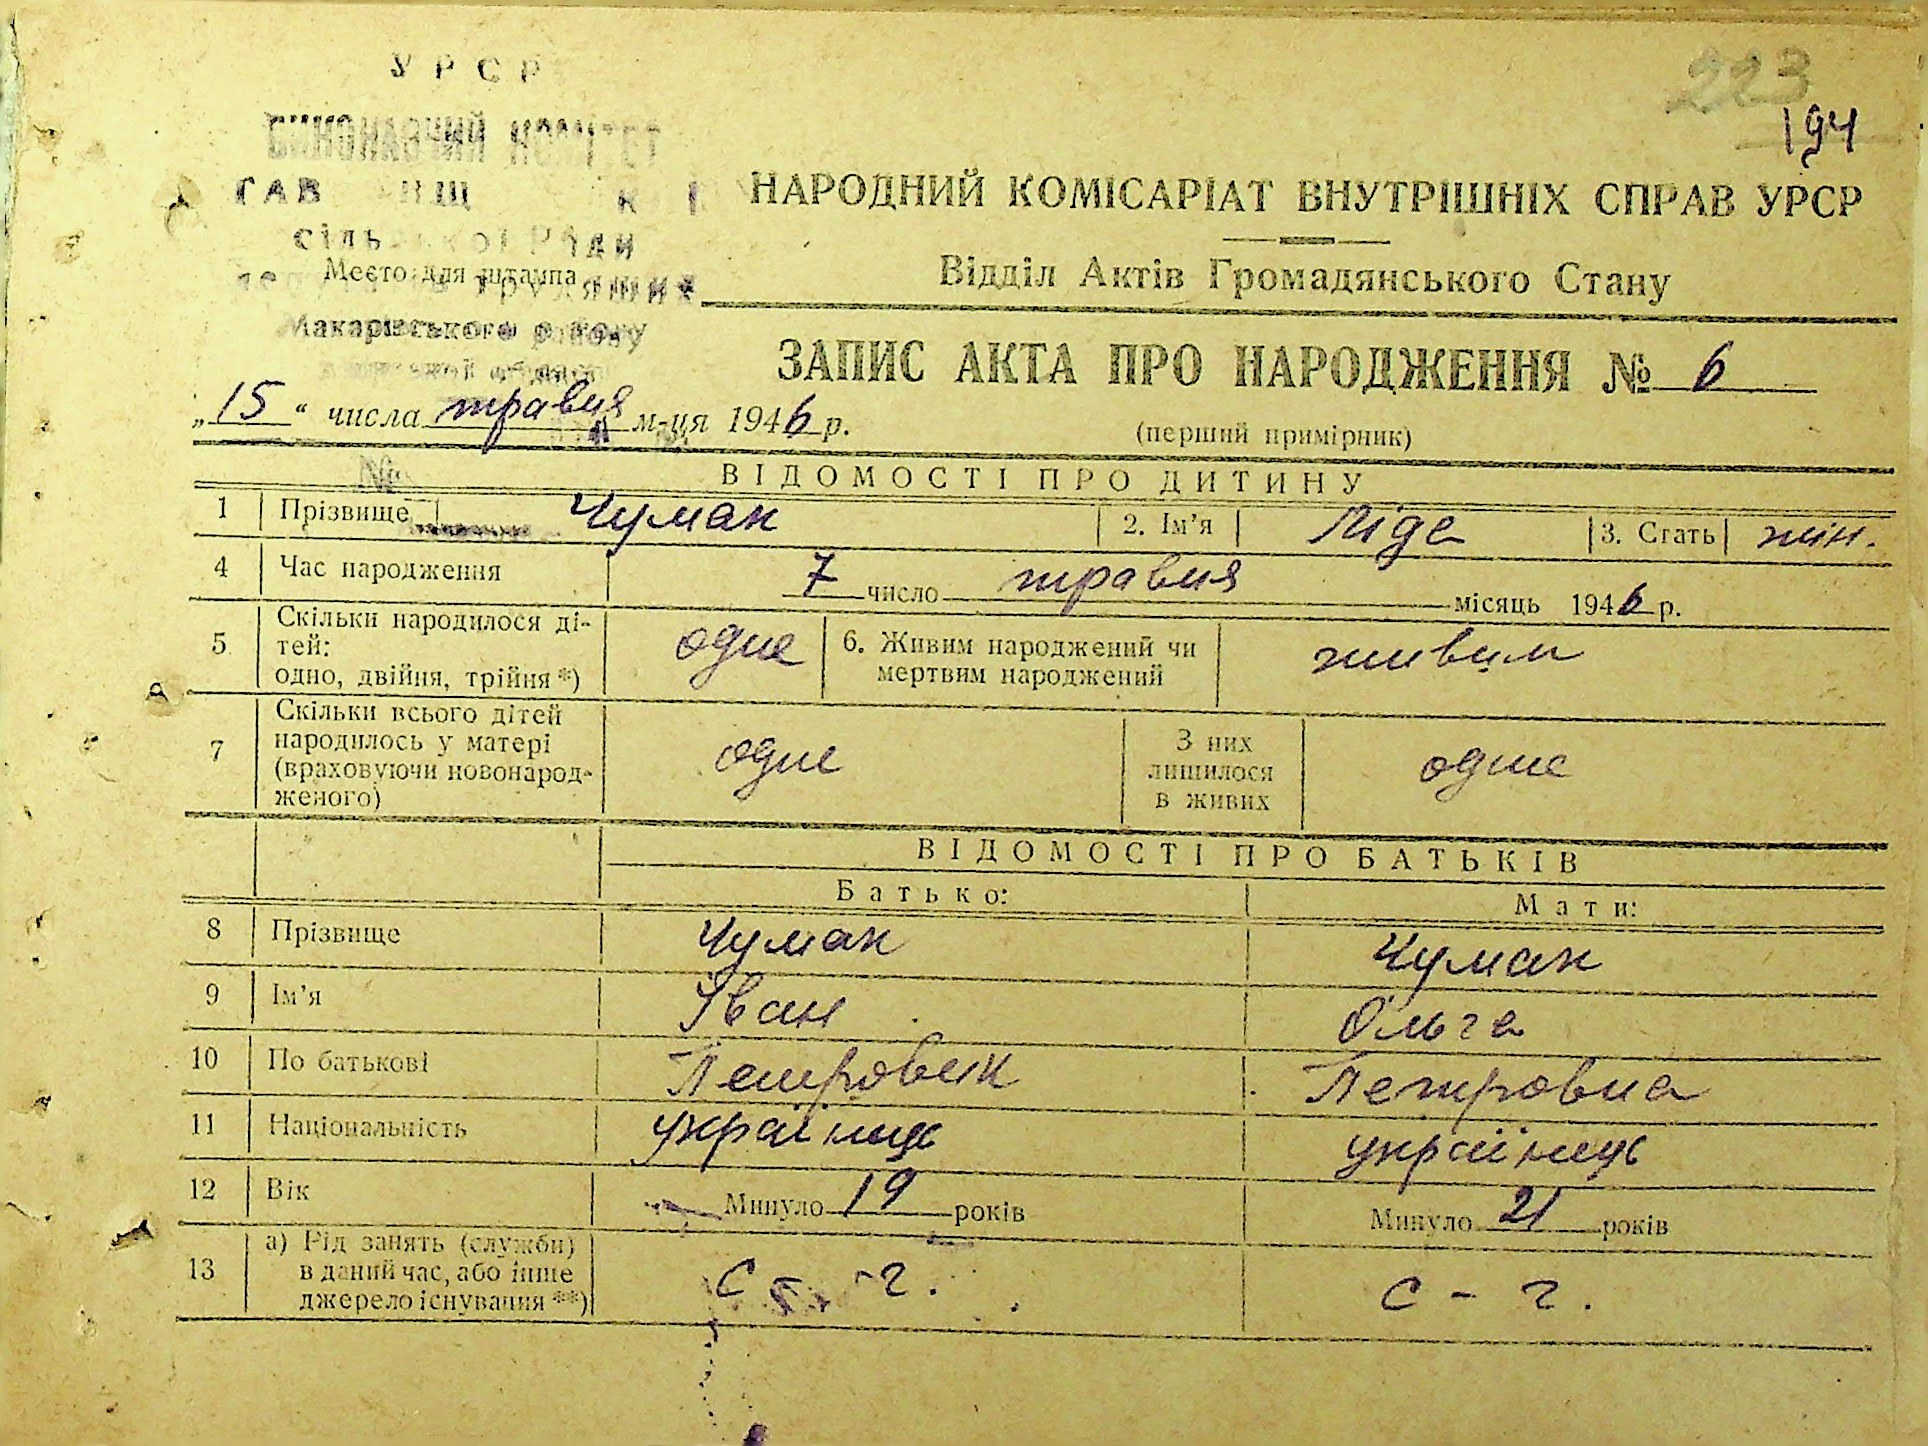 УРСР
223
194
НАРОДНИЙ КОМІСАРІАТ ВНУТРІШНІХ СПРАВ УРСР
Виконавчий комітет
сільської Ради
Место для штампа
Відділ Актів Громадянського Стану
Макарівського району
ЗАПИС АКТА ПРО НАРОДЖЕННЯ № 6
„15“ числа травня м-ця 1946 р.
(перший примірник)
№
ВІДОМОСТІ ПРО ДИТИНУ
1 Прізвище Чумак 2. Ім'я Ліда 3. Стать жін.
4 Час народження 7 число травня місяць 1946 р.
5 Скільки народилося ді-
тей:
одно, двійня, трійня *) одне 6. Живим народжений чи
мертвим народжений живим
7 Скільки всього дітей
народилось у матері
(враховуючи новонарод-
женого) одне З них
лишилося
в живих одне
ВІДОМОСТІ ПРО БАТЬКІВ
Батько: Мати:
8 Прізвище Чумак Чумак
9 Ім'я Іван Ольга
10 По батькові Петровик Петровна
11 Національність українець українець
12 Вік Минуло 19 років Минуло 21 років
13 а) Рід занять (служби)
в даний час, або інше
джерело існування **) с - г. с - г.